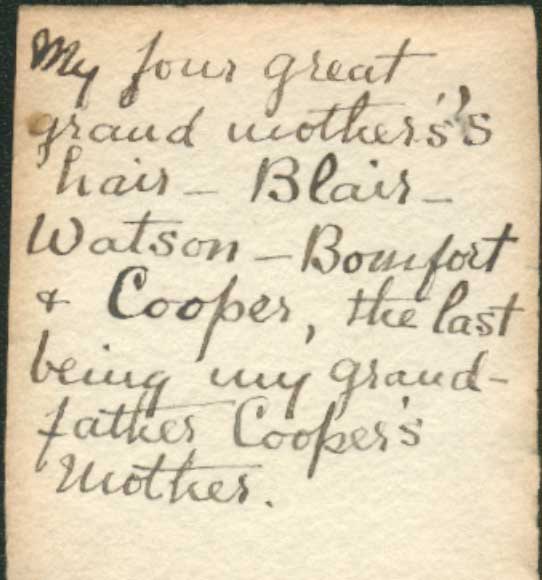 My four great
grand mothers's
hair – Blair –
Watson – Bomfort
& Cooper, the last
being my grand-
father Cooper's
Mother.